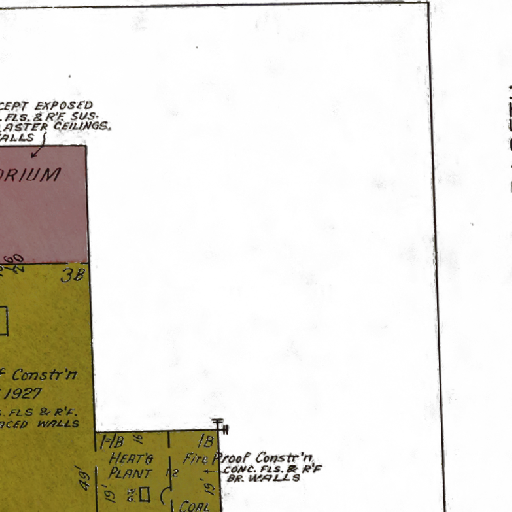 CEPT EXPOSED
FLS. & R'F. SUS-
ASTER CEILINGS.
ALLS
ORIUM
20
3B
F Constr'n
1927
FLS & R'F.
NCED WALLS
1-1B
16
1B
HEAT'G
PLANT
12
Fire Proof Constr'n.
CONC. FLS. & R'F
BR. WALLS
49'
19'
15'
COAL